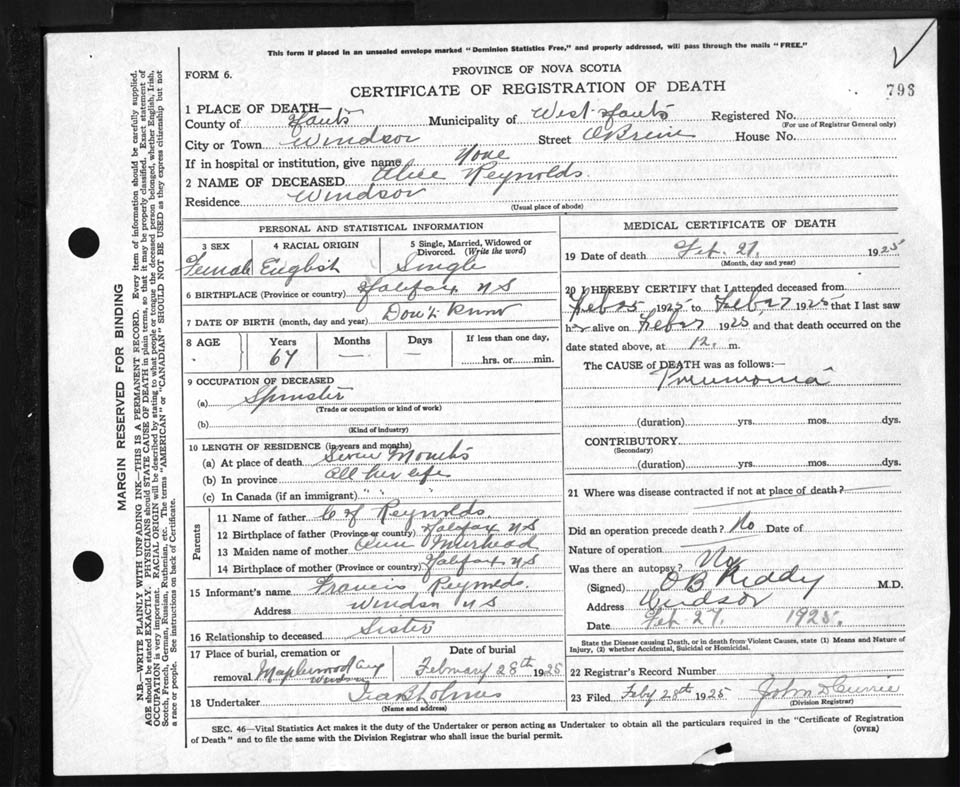 This form if placed in an unsealed envelope marked "Dominion Statistics Free," and properly addressed, will pass through the mails "FREE."
FORM 6.
PROVINCE OF NOVA SCOTIA
CERTIFICATE OF REGISTRATION OF DEATH
793
1 PLACE OF DEATH—
County of Hants Municipality of West Hants Registered No.
(For use of Registrar General only)
City or Town Windsor Street O'Brein House No.
If in hospital or institution, give name None
2 NAME OF DECEASED Alice Reynolds
Residence Windsor
(Usual place of abode)
PERSONAL AND STATISTICAL INFORMATION
3 SEX 4 RACIAL ORIGIN 5 Single, Married, Widowed or Divorced. (Write the word)
Female English Single
6 BIRTHPLACE (Province or country) Halifax N S
7 DATE OF BIRTH (month, day and year) Don't Know
8 AGE Years Months Days If less than one day,
67 — — hrs. or min.
9 OCCUPATION OF DECEASED
(a) Spinster
(Trade or occupation or kind of work)
(b)
(Kind of industry)
10 LENGTH OF RESIDENCE (in years and months)
(a) At place of death Seven Months
(b) In province all her life
(c) In Canada (if an immigrant) " " "
Parents
11 Name of father Reynolds
12 Birthplace of father (Province or country) Halifax N S
13 Maiden name of mother Ann Muirhead
14 Birthplace of mother (Province or country) Halifax N S
15 Informant's name Francis Reynolds
Address Windsor N S
16 Relationship to deceased Sister
17 Place of burial, cremation or Date of burial
removal Maplewood Cey February 28th 1925
Windsor
18 Undertaker Holmes
(Name and address)
MEDICAL CERTIFICATE OF DEATH
19 Date of death Feb. 27, 1925
(Month, day and year)
20 I HEREBY CERTIFY that I attended deceased from
Feb 25 1925 to Feb 27 1925 that I last saw
her alive on Feb 27 1925, and that death occurred on the
date stated above, at 12. m.
The CAUSE of DEATH was as follows:—
Pneumonia
(duration) yrs. mos. dys.
CONTRIBUTORY
(Secondary)
(duration) yrs. mos. dys.
21 Where was disease contracted if not at place of death?
Did an operation precede death? No Date of
Nature of operation
Was there an autopsy? No
(Signed) O B Keddy M.D.
Address Windsor
Date Feb 27, 1925.
State the Disease causing Death, or in death from Violent Causes, state (1) Means and Nature of
Injury, (2) whether Accidental, Suicidal or Homicidal.
22 Registrar's Record Number
23 Filed Feby 28th 1925 John D Currie
(Division Registrar)
SEC. 46—Vital Statistics Act makes it the duty of the Undertaker or person acting as Undertaker to obtain all the particulars required in the "Certificate of Registration
of Death" and to file the same with the Division Registrar who shall issue the burial permit.
(OVER)
MARGIN RESERVED FOR BINDING
N.B.—WRITE PLAINLY WITH UNFADING INK—THIS IS A PERMANENT RECORD. Every item of information should be carefully supplied.
AGE should be stated EXACTLY. PHYSICIANS should STATE CAUSE OF DEATH in plain terms, so that it may be properly classified. Exact statement of
OCCUPATION is very important. RACIAL ORIGIN will be described by stating to what people or tongue the deceased person belonged, whether English, Irish,
Scotch, French, German, Russian, Ruthenian, etc. The terms "AMERICAN" or "CANADIAN" SHOULD NOT BE USED as they express citizenship but not
a race or people. See instructions on back of Certificate.